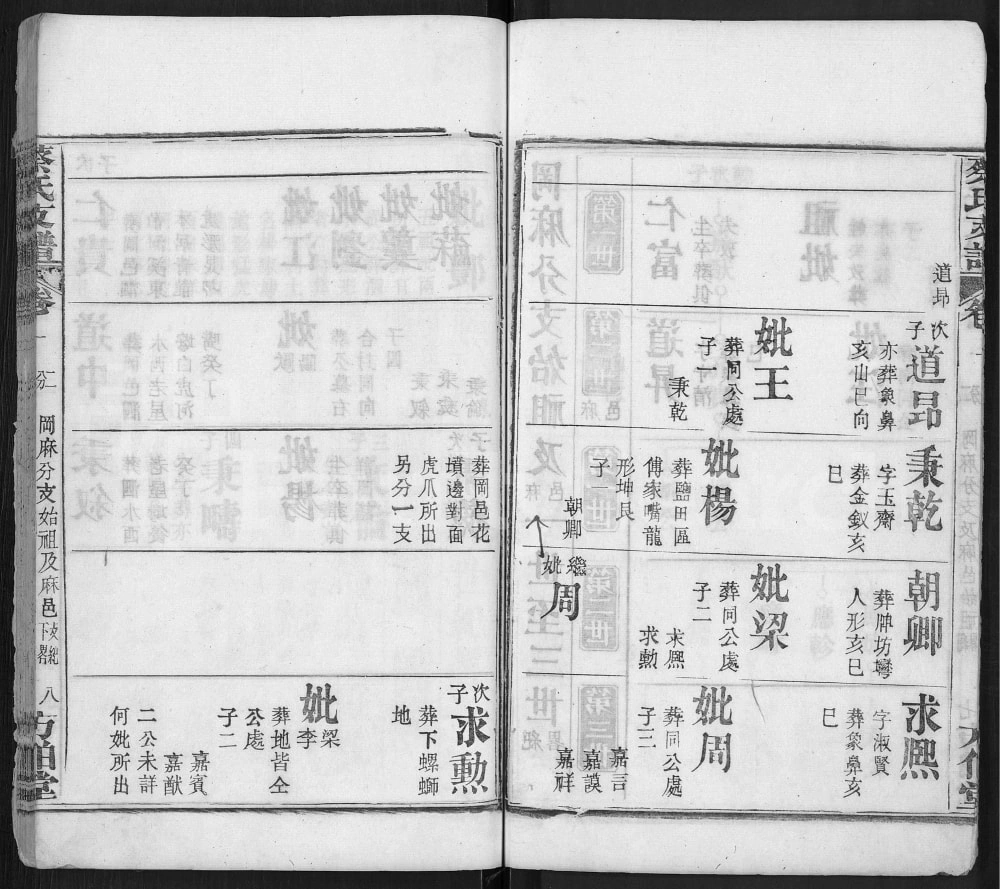 蔡氏支譜
卷
道昻
次子
道昻
亦葬象鼻
亥山巳向
妣王
葬同公處
子一
秉乾
秉乾
字玉齋
葬金釵亥
巳
妣楊
葬鹽田區
傅家嘴龍
形坤艮
子
朝卿
繼妣
周
朝卿
葬牌坊灣
人形亥巳
妣梁
葬同公處
子二
求熙
求勲
求熙
字淑賢
葬象鼻亥
巳
妣周
葬同公處
子三
嘉言
嘉謨
嘉祥
葬岡邑花
墳邊對面
虎爪所出
另分一支
次子
求勲
葬下螺螄
地
妣
梁
李
葬地皆仝
公處
子二
嘉賓
嘉猷
二公未詳
何妣所出
蔡氏支譜
卷一
岡麻分支始祖及麻邑
八
方伯堂